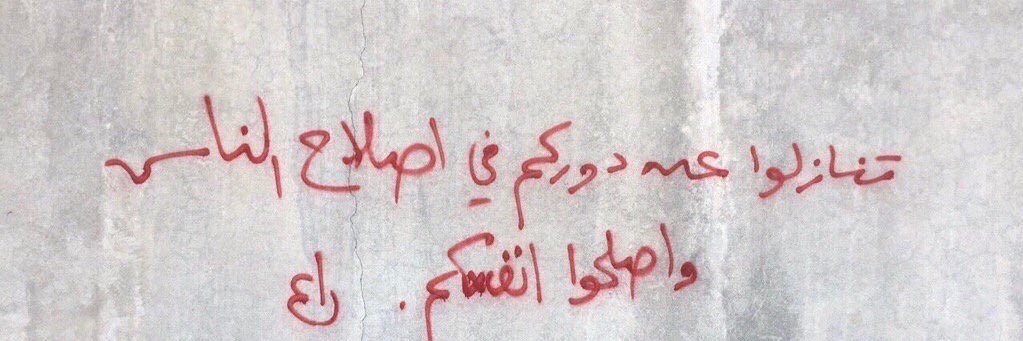 تنازلوا عن دوركم في اصلاح الناس
واصلحوا انفسكم .